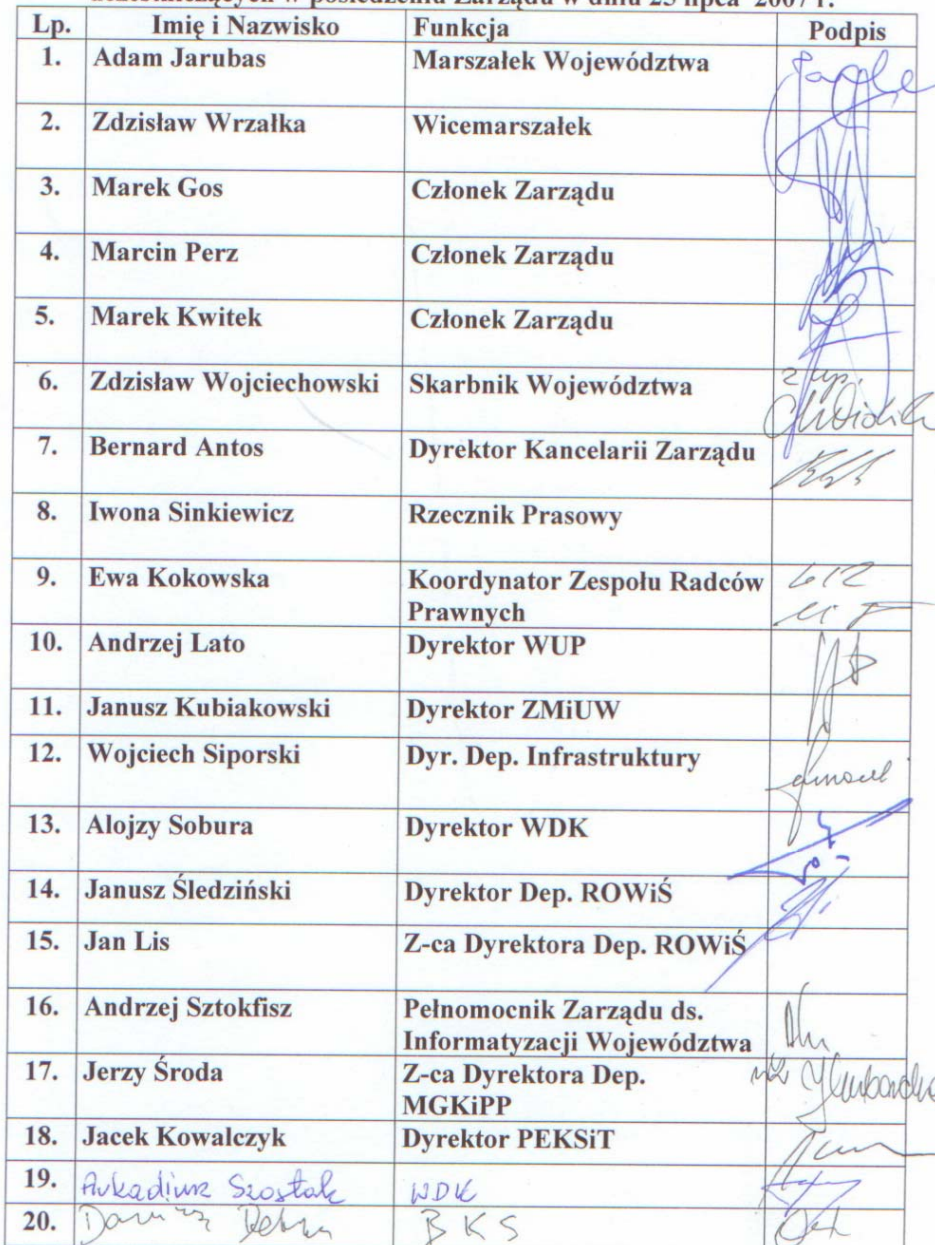 uczestniczących w posiedzeniu Zarządu w dniu 25 lipca 2007 r.
Lp. Imię i Nazwisko Funkcja Podpis
1. Adam Jarubas Marszałek Województwa
2. Zdzisław Wrzałka Wicemarszałek
3. Marek Gos Członek Zarządu
4. Marcin Perz Członek Zarządu
5. Marek Kwitek Członek Zarządu
6. Zdzisław Wojciechowski Skarbnik Województwa z up.
7. Bernard Antos Dyrektor Kancelarii Zarządu
8. Iwona Sinkiewicz Rzecznik Prasowy
9. Ewa Kokowska Koordynator Zespołu Radców
Prawnych
10. Andrzej Lato Dyrektor WUP
11. Janusz Kubiakowski Dyrektor ZMiUW
12. Wojciech Siporski Dyr. Dep. Infrastruktury
13. Alojzy Sobura Dyrektor WDK
14. Janusz Śledziński Dyrektor Dep. ROWiŚ
15. Jan Lis Z-ca Dyrektora Dep. ROWiŚ
16. Andrzej Sztokfisz Pełnomocnik Zarządu ds.
Informatyzacji Województwa
17. Jerzy Środa Z-ca Dyrektora Dep.
MGKiPP
18. Jacek Kowalczyk Dyrektor PEKSiT
19. Arkadiusz Szostak WDK
20. BKS